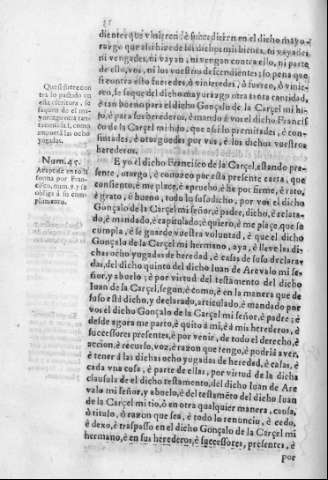 dientes que vinieren, è subcedieren en el dicho mayo-
razgo que assi hize de los dichos mis bienes, ni vayades,
ni vengades, ni vayan, ni vengan contra ello, ni parte
de ello, vos, ni los vuestros descendientes; so pena que
si contra ello fueredes, ò vinieredes, ò fueren, ò vinie-
ren, se saque del dicho mayorazgo otra tanta cantidad,
è tan bueno para el dicho Gonçalo de la Carçel mi hi-
jo, è para sus herederos, è mando è vos el dicho Francis-
co de la Carçel mi hijo, que assi lo prometades, è con-
sintades, è otorguedes por vos, è los dichos vuestros
herederos.
Que si fuere con
tra lo pactado en
esta escritura, se
saque de el ma-
yorazgo otra tan-
ta cantidad, como
montan las ocho
yugadas.
E yo el dicho Francisco de la Carçel, estando pre-
sente, otorgo, è conozco por esta presente carta, que
consiento, è me place, è apruebo, è he por firme, è rato,
è grato, è bueno, todo lo suso dicho, por vos el dicho
Gonçalo de la Carçel mi señor, è padre, dicho, è relata-
do, è mandado, è capitulado, è quiero, è me place, que se
cumpla, è se guarde vuestra voluntad, è que el dicho
Gonçalo de la Carçel mi hermano, aya, è lleve las di-
chas ocho yugadas de heredad, è casas de suso declara-
das, del dicho quinto del dicho Juan de Arevalo mi se-
ñor, y abuelo; è por virtud del testamento del dicho
Juan de la Carçel, segun, è como, è en la manera que de
suso està dicho, y declarado, articulado, è mandado por
vos el dicho Gonçalo de la Carçel mi señor, è padre; è
desde agora me parto, è quito à mi, è à mis herederos, è
successores presentes, è por venir, de todo el derecho, è
accion, è recurso, voz, è razon que tengo, è podria aver,
è tener à las dichas ocho yugadas de heredad, è casas, è
cada vna cosa, è parte de ellas, por virtud de la dicha
clausula de el dicho testamento, del dicho Juan de Are
valo mi señor, y abuelo, è del testamẽto del dicho Juan
de la Carçel mi tio, ò en otra qualquier manera, causa,
ò titulo, ò razon que sea, è todo lo renuncio, è cedo,
è doy, è traspasso en el dicho Gonçalo de la Carçel mi
hermano, è en sus herederos, è successores, presentes, è
por
Num. 45.